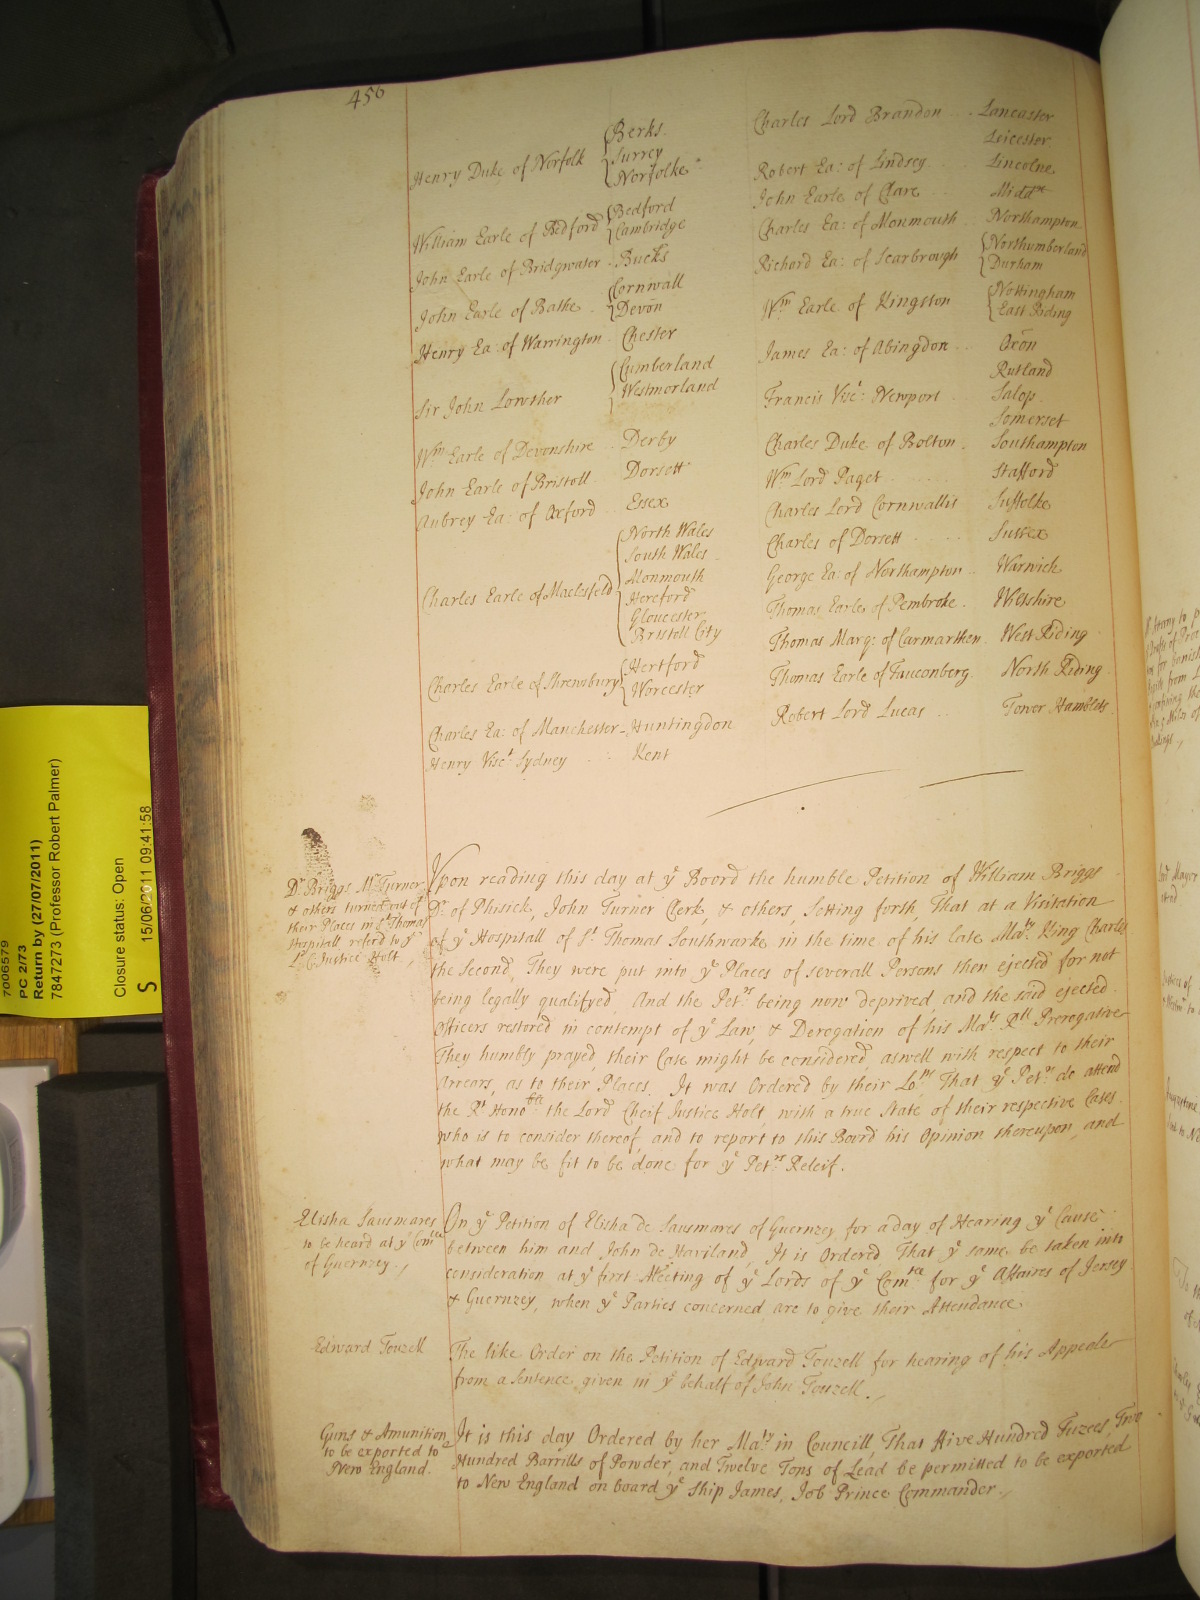 456
Henry Duke of Norfolk { Berks.
Surrey
Norfolke
William Earle of Bedford { Bedford
Cambridge
John Earle of Bridgwater . Bucks
John Earle of Bathe . { Cornwall
Devon
Henry Ea: of Warrington . Chester
Sir John Lowther { Cumberland
Westmorland
Wm Earle of Devonshire . Derby
John Earle of Bristoll . Dorsett
Aubrey Ea: of Oxford . Essex
Charles Earle of Maclesfeld { North Wales
South Wales
Monmouth
Hereford
Gloucester
Bristoll City
Charles Earle of Shrewsbury { Hertford
Worcester
Charles Ea: of Manchester - Huntingdon
Henry Visct Sydney . : Kent
Charles Lord Brandon ... Lancaster
Leicester
Robert Ea: of Lindsey .. Lincolne
John Earle of Clare .. Middx
Charles Ea: of Monmouth . Northampton
Richard Ea: of Scarbrough { Northumberland
Durham
Wm Earle of Kingston { Nottingham
East Riding
James Ea: of Abingdon .. Oxōn
Rutland
Francis Visct: Newport . Salop
Somerset
Charles Duke of Bolton . Southampton
Wm Lord Paget ..... Stafford
Charles Lord Cornwallis Suffolke
Charles of Dorsett .... Sussex
George Ea: of Northampton .. Warwick
Thomas Earle of Pembroke . Wiltshire
Thomas Marq: of Carmarthen . West Riding
Thomas Earle of Fauconberg . North Riding
Robert Lord Lucas .. Tower Hamblets
Dr Briggs Mr Turner
& others turned out of
their Places in St Thomas
Hospitall referd to ye
Ld C Justice Holt
Upon reading this day at ye Board the humble Petition of William Briggs
Dr. of Phisick, John Turner Clerk, & others, Setting forth, That at a Visitation
of ye Hospitall of St Thomas Southwarke in the time of his late Maty King Charles
the Second, They were put into ye Places of severall Persons then ejected for not
being legally qualifyed And the Petrs being now deprived, and the said ejected
Officers restored in contempt of ye Law, & Derogation of his Mats Rll Prerogative
They humbly prayed, their Case might be considered, aswell with respect to their
Arrears, as to their Places. It was Ordered by their Lops That ye Petrs do attend
the Rt Honoble the Lord Cheif Justice Holt, with a true State of their respective Cases
who is to consider thereof, and to report to this Board his Opinion thereupon, and
what may be fit to be done for ye Petrs Releif.
Elisha Sausmares
to be heard at ye Comtee
of Guernzey.
On ye Petition of Elisha de Sausmares of Guernzey for a day of Hearing ye Cause
between him and John de Haviland, It is Ordered That ye same be taken into
consideration at ye first Meeting of ye Lords of ye Comtee for ye Affaires of Jersey
& Guernzey, when ye Parties concerned are to give their Attendance.
Edward Touzell
The like Order on the Petition of Edward Touzell for hearing of his Appeale
from a Sentence given in ye behalf of John Touzell.
Guns & Amunition
to be exported to
New England.
It is this day Ordered by her Maty in Councill, That Five Hundred Fuzees, Two
Hundred Barrills of Powder, and Twelve Tons of Lead be permitted to be exported
to New England on board ye Ship James, Job Prince Commander.
7006579
PC 2/73
Return by (27/07/2011)
7847273 (Professor Robert Palmer)
Closure status: Open
S 15/06/2011 09:41:58